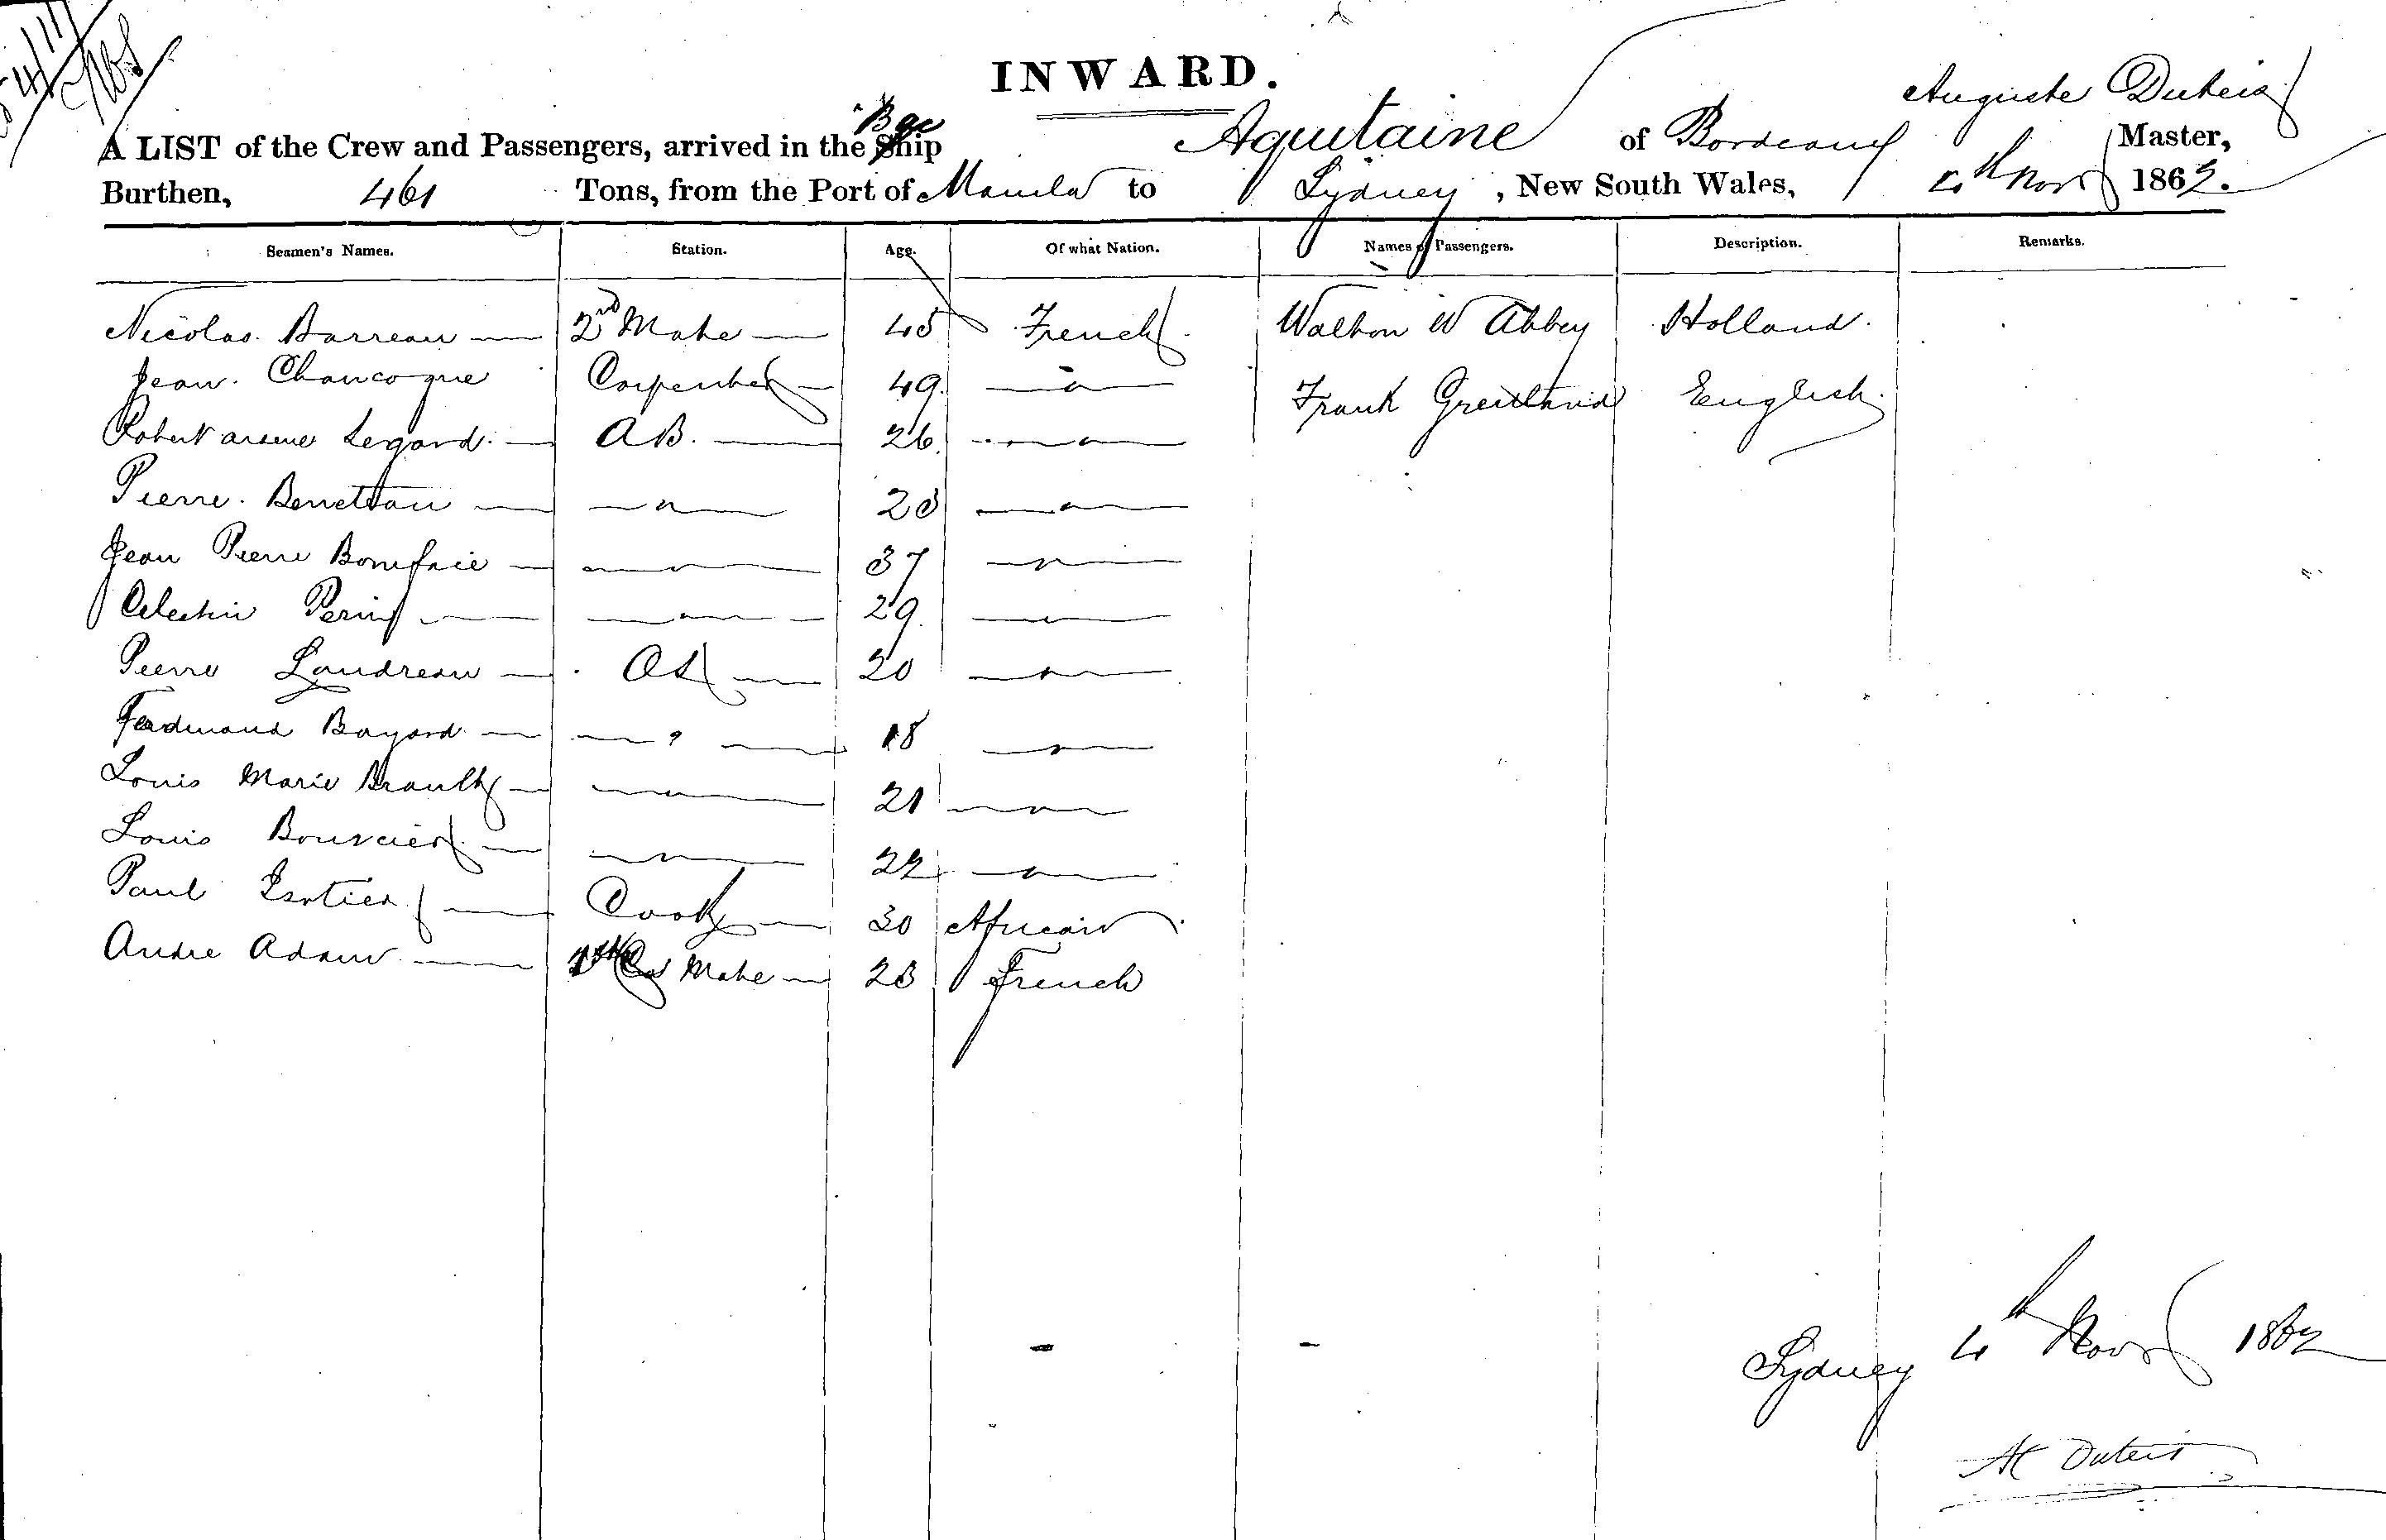 INWARD.
Auguste Duteis
A LIST of the Crew and Passengers, arrived in the Ship Bqe Aquitaine of Bordeaux Master,
Burthen, 461 Tons, from the Port of Manila to Sydney, New South Wales, 4th Novr 1862.
Seamen's Names. Station. Age. Of what Nation. Names of Passengers. Description. Remarks.
Nicolas Barreau — 2nd Mate — 45 French Walton W Abbey Holland.
Jean Chancogne Carpenter — 49. — " —
Frank English.
Robert arsene Legard — AB. — 26. — " —
Pierre — — " — — " —
Jean Pierre Boniface — — " — 37 — " —
Celestin — — " — 29. — " —
Pierre Landreau — OS — 20 — " —
Ferdinand Bayard — — " — 18 — " —
Louis Marie Brault — — " — 21 — " —
Louis — — " — 22 — " —
Paul — Cook — 30 African
Andre Adam — Mate — French
Sydney 4th Novr 1862
A Duteis